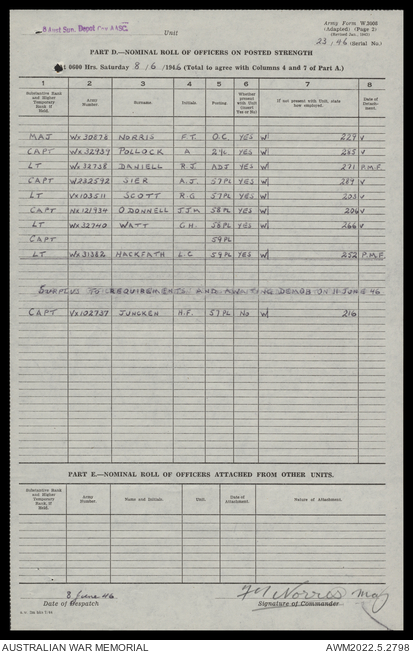 8 Aust Sup. Depot Coy AASC.
Unit
Army Form W.3008
(Adapted) (Page 2)
23/46 (Serial No.)
PART D.—NOMINAL ROLL OF OFFICERS ON POSTED STRENGTH
At 0600 Hrs. Saturday 8/6/1946 (Total to agree with Columns 4 and 7 of Part A.)
1 2 3 4 5 6 7 8
Substantive Rank and Higher Temporary Rank if Held. Army Number Surname. Initials. Posting. Whether present with Unit (insert Yes or No) If not present with Unit, state how employed. Date of Detachment.
MAJ WX30878 NORRIS F.T. O.C. YES W 229 V
CAPT WX32939 POLLOCK A 2 i/c YES W 265 V
LT WX32738 DANIELL R.J. ADJ YES W 271 P.M.F.
CAPT SIER A.J. 57PL YES W 289 V
LT VX103511 SCOTT R.G 57PL YES W 203 V
CAPT NX121934 O'DONNELL J.J.M 58PL YES W 206 V
LT WX32740 WATT C.H. 58PL YES W 266 V
CAPT 59PL
LT WX31382 HACKFATH L.C 59PL YES W 252 P.M.F.
SURPLUS TO REQUIREMENTS AND AWAITING DEMOB ON 11 JUNE 46
CAPT VX102737 JUNCKEN H.F. 57PL NO W 216
PART E.—NOMINAL ROLL OF OFFICERS ATTACHED FROM OTHER UNITS.
Substantive Rank and Higher Temporary Rank, if Held. Army Number Name and Initials. Unit. Date of Attachment. Nature of Attachment.
8 June 46 F T Norris Maj
Date of Despatch Signature of Commander
AUSTRALIAN WAR MEMORIAL AWM2022.5.2798